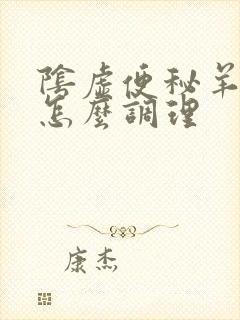 陰虛便秘羊
怎麼調理
康杰